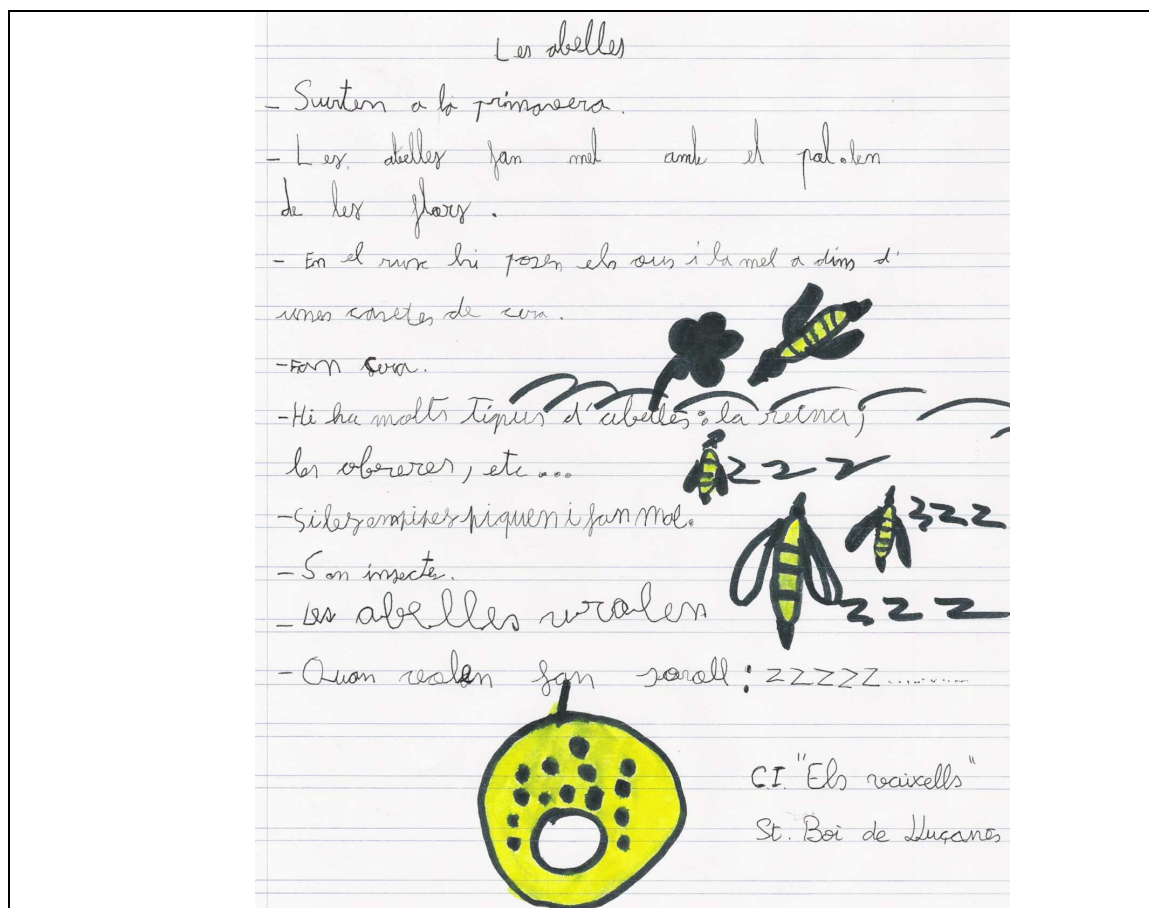 Les abelles
- Surten a la primavera.
- Les abelles fan mel amb el pol.len
de les flors.
- En el rusc hi posen els ous i la mel a dins d'
unes casetes de cera.
- Fan cera.
- Hi ha molts tipus d'abelles: la reina,
les obreres, etc...
- Si les empipes piquen i fan mal.
- Son insectes.
- Les abelles volen
zzz
zzz
zzz
- Quan volen fan soroll: ZZZZZ..........
C.I. "Els vaixells"
St. Boi de Lluçanès